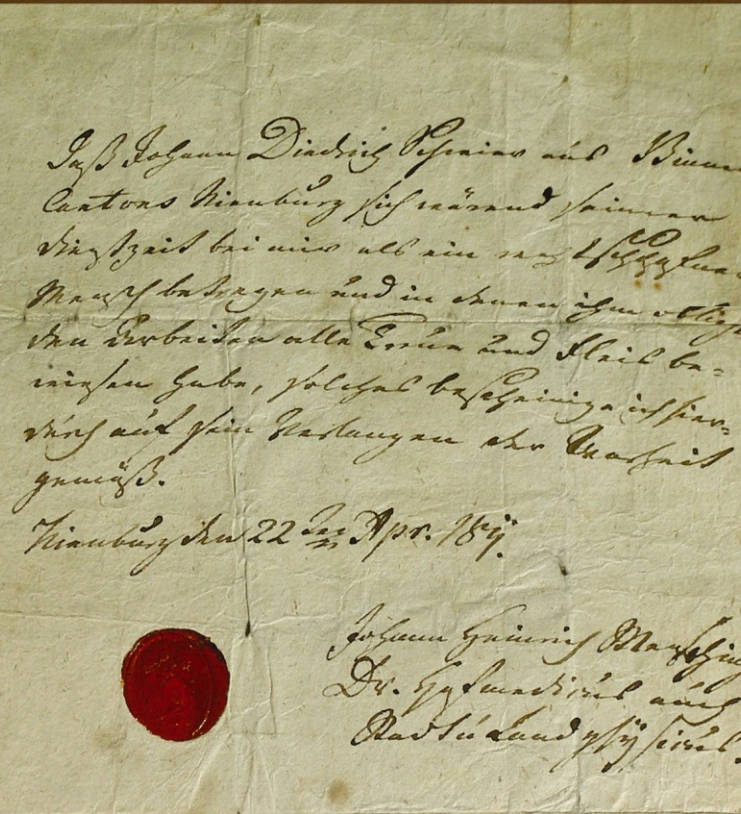 Daß Johann Diedrich Schreier aus Binne
Cantons Nienburg sich wärend seiner
Dienstzeit bei mir als ein rechtschaffner
Mensch betragen und in denen ihm obliegen
den Arbeiten alle Treue und Fleis be-
wiesen habe, solches bescheinige ich hier-
durch auf sein Verlangen der Warheit
gemäß.
Nienburg den 22 ten Apr. 1811.
Johann Heinrich
Dr. Hofmedicus auch
Stadt u Landphysicus.